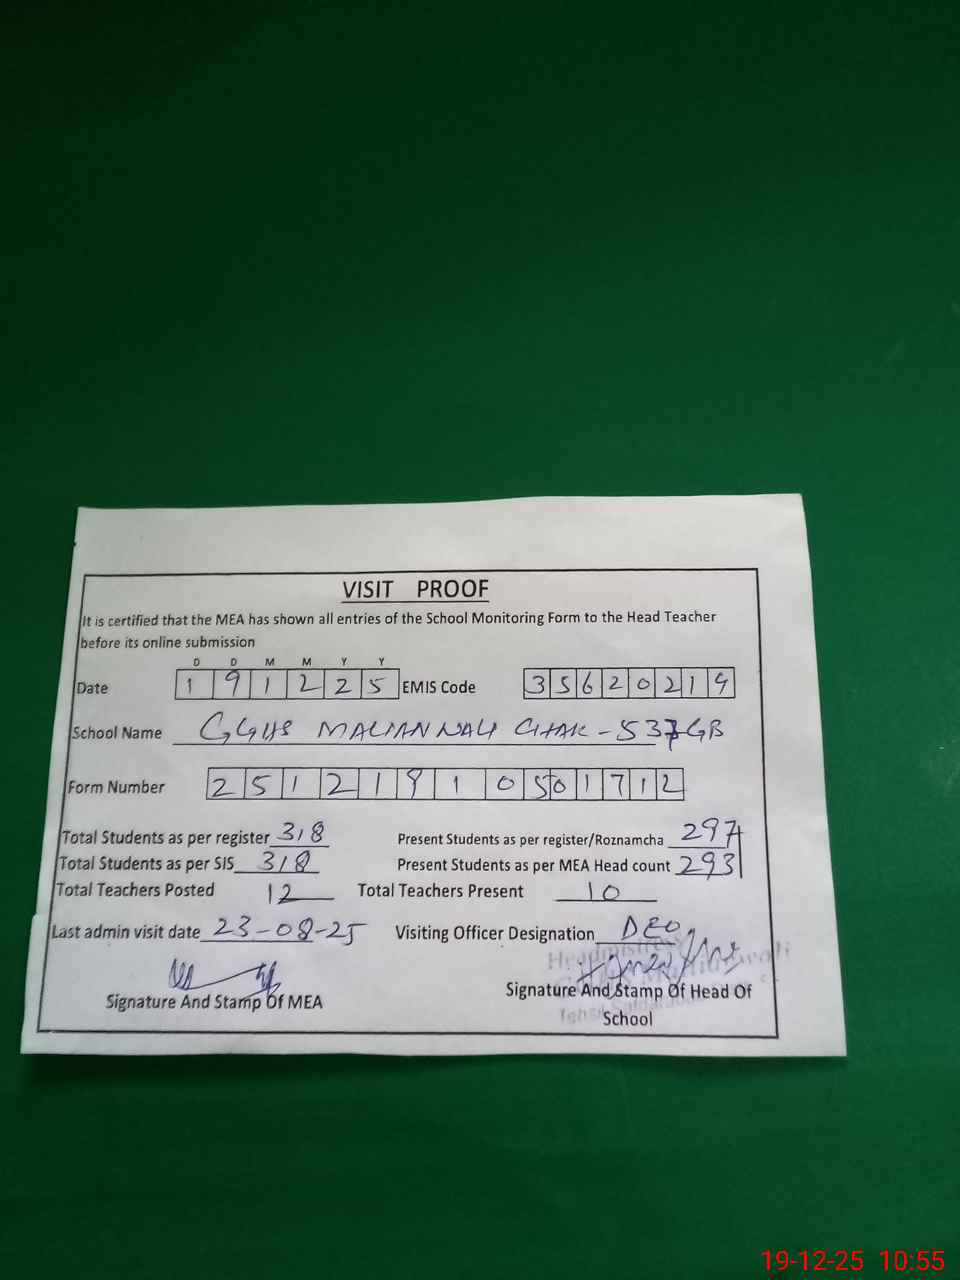 VISIT PROOF
It is certified that the MEA has shown all entries of the School Monitoring Form to the Head Teacher
before its online submission
D D M M Y Y
Date 1 9 1 2 2 5 EMIS Code 3 5 6 2 0 2 1 9
School Name GGHS MALIANWALI CHAK-537GB
Form Number 2 5 1 2 1 9 1 0 5 0 1 7 1 2
Total Students as per register 318 Present Students as per register/Roznamcha 297
Total Students as per SIS 318 Present Students as per MEA Head count 293
Total Teachers Posted 12 Total Teachers Present 10
Last admin visit date 23-08-25 Visiting Officer Designation DEO
Headmistress
Signature And Stamp Of MEA Signature And Stamp Of Head Of
School
19-12-25 10:55